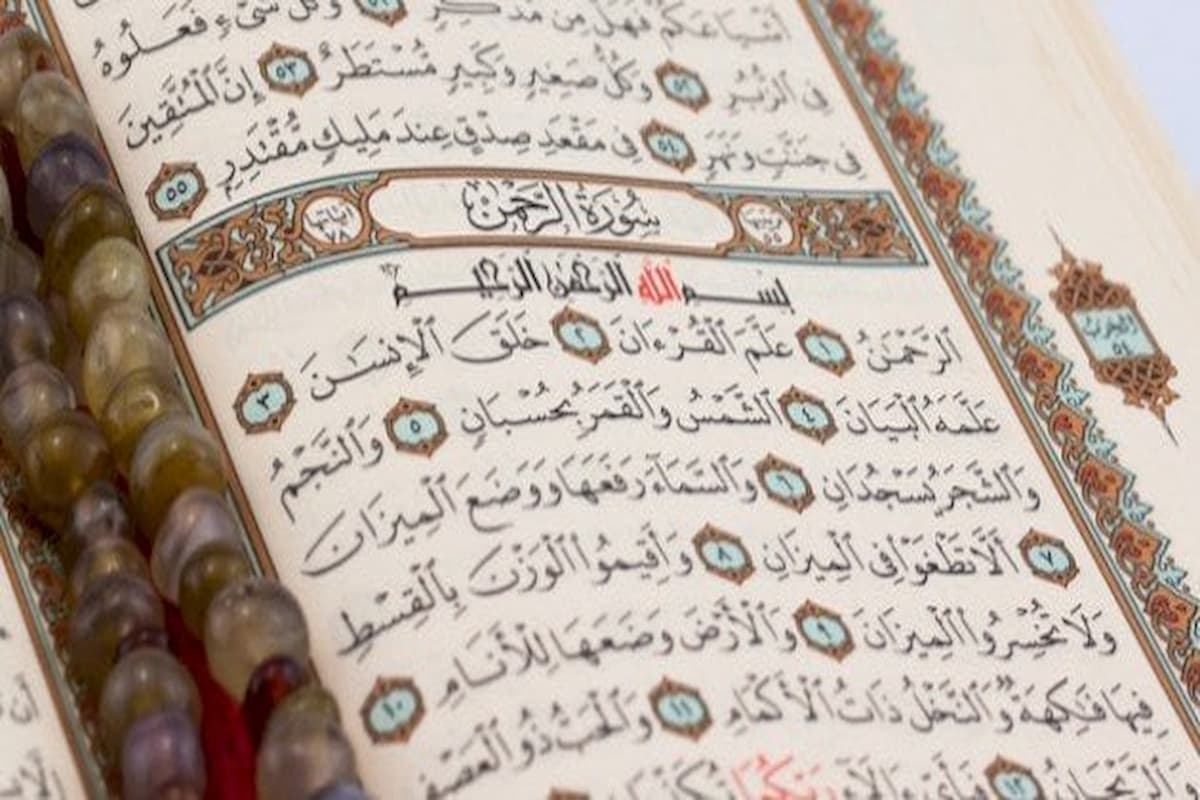 أشياعكم فهل من مدكر ٥١ وكل شىء فعلوه
فى الزبر ٥٢ وكل صغير وكبير مستطر ٥٣ إن المتقين
فى جنت ونهر ٥٤ فى مقعد صدق عند مليك مقتدر ٥٥
ترتيبها ٥٥ سورة الرحمن آياتها ٧٨
بسم الله الرحمن الرحيم
ٱلرَّحْمَٰنُ ١ عَلَّمَ ٱلْقُرْءَانَ ٢ خَلَقَ ٱلْإِنسَٰنَ ٣
عَلَّمَهُ ٱلْبَيَانَ ٤ ٱلشَّمْسُ وَٱلْقَمَرُ بِحُسْبَانٍ ٥ وَٱلنَّجْمُ
وَٱلشَّجَرُ يَسْجُدَانِ ٦ وَٱلسَّمَآءَ رَفَعَهَا وَوَضَعَ ٱلْمِيزَانَ
٧ أَلَّا تَطْغَوْا۟ فِى ٱلْمِيزَانِ ٨ وَأَقِيمُوا۟ ٱلْوَزْنَ بِٱلْقِسْطِ
وَلَا تُخْسِرُوا۟ ٱلْمِيزَانَ ٩ وَٱلْأَرْضَ وَضَعَهَا لِلْأَنَامِ ١٠
فِيهَا فَٰكِهَةٌ وَٱلنَّخْلُ ذَاتُ ٱلْأَكْمَامِ ١١ وَٱلْحَبُّ ذُو ٱلْعَصْفِ
وَٱلرَّيْحَانُ ١٢ فَبِأَىِّ ءَالَآءِ رَبِّكُمَا تُكَذِّبَانِ
الحزب
٥٤